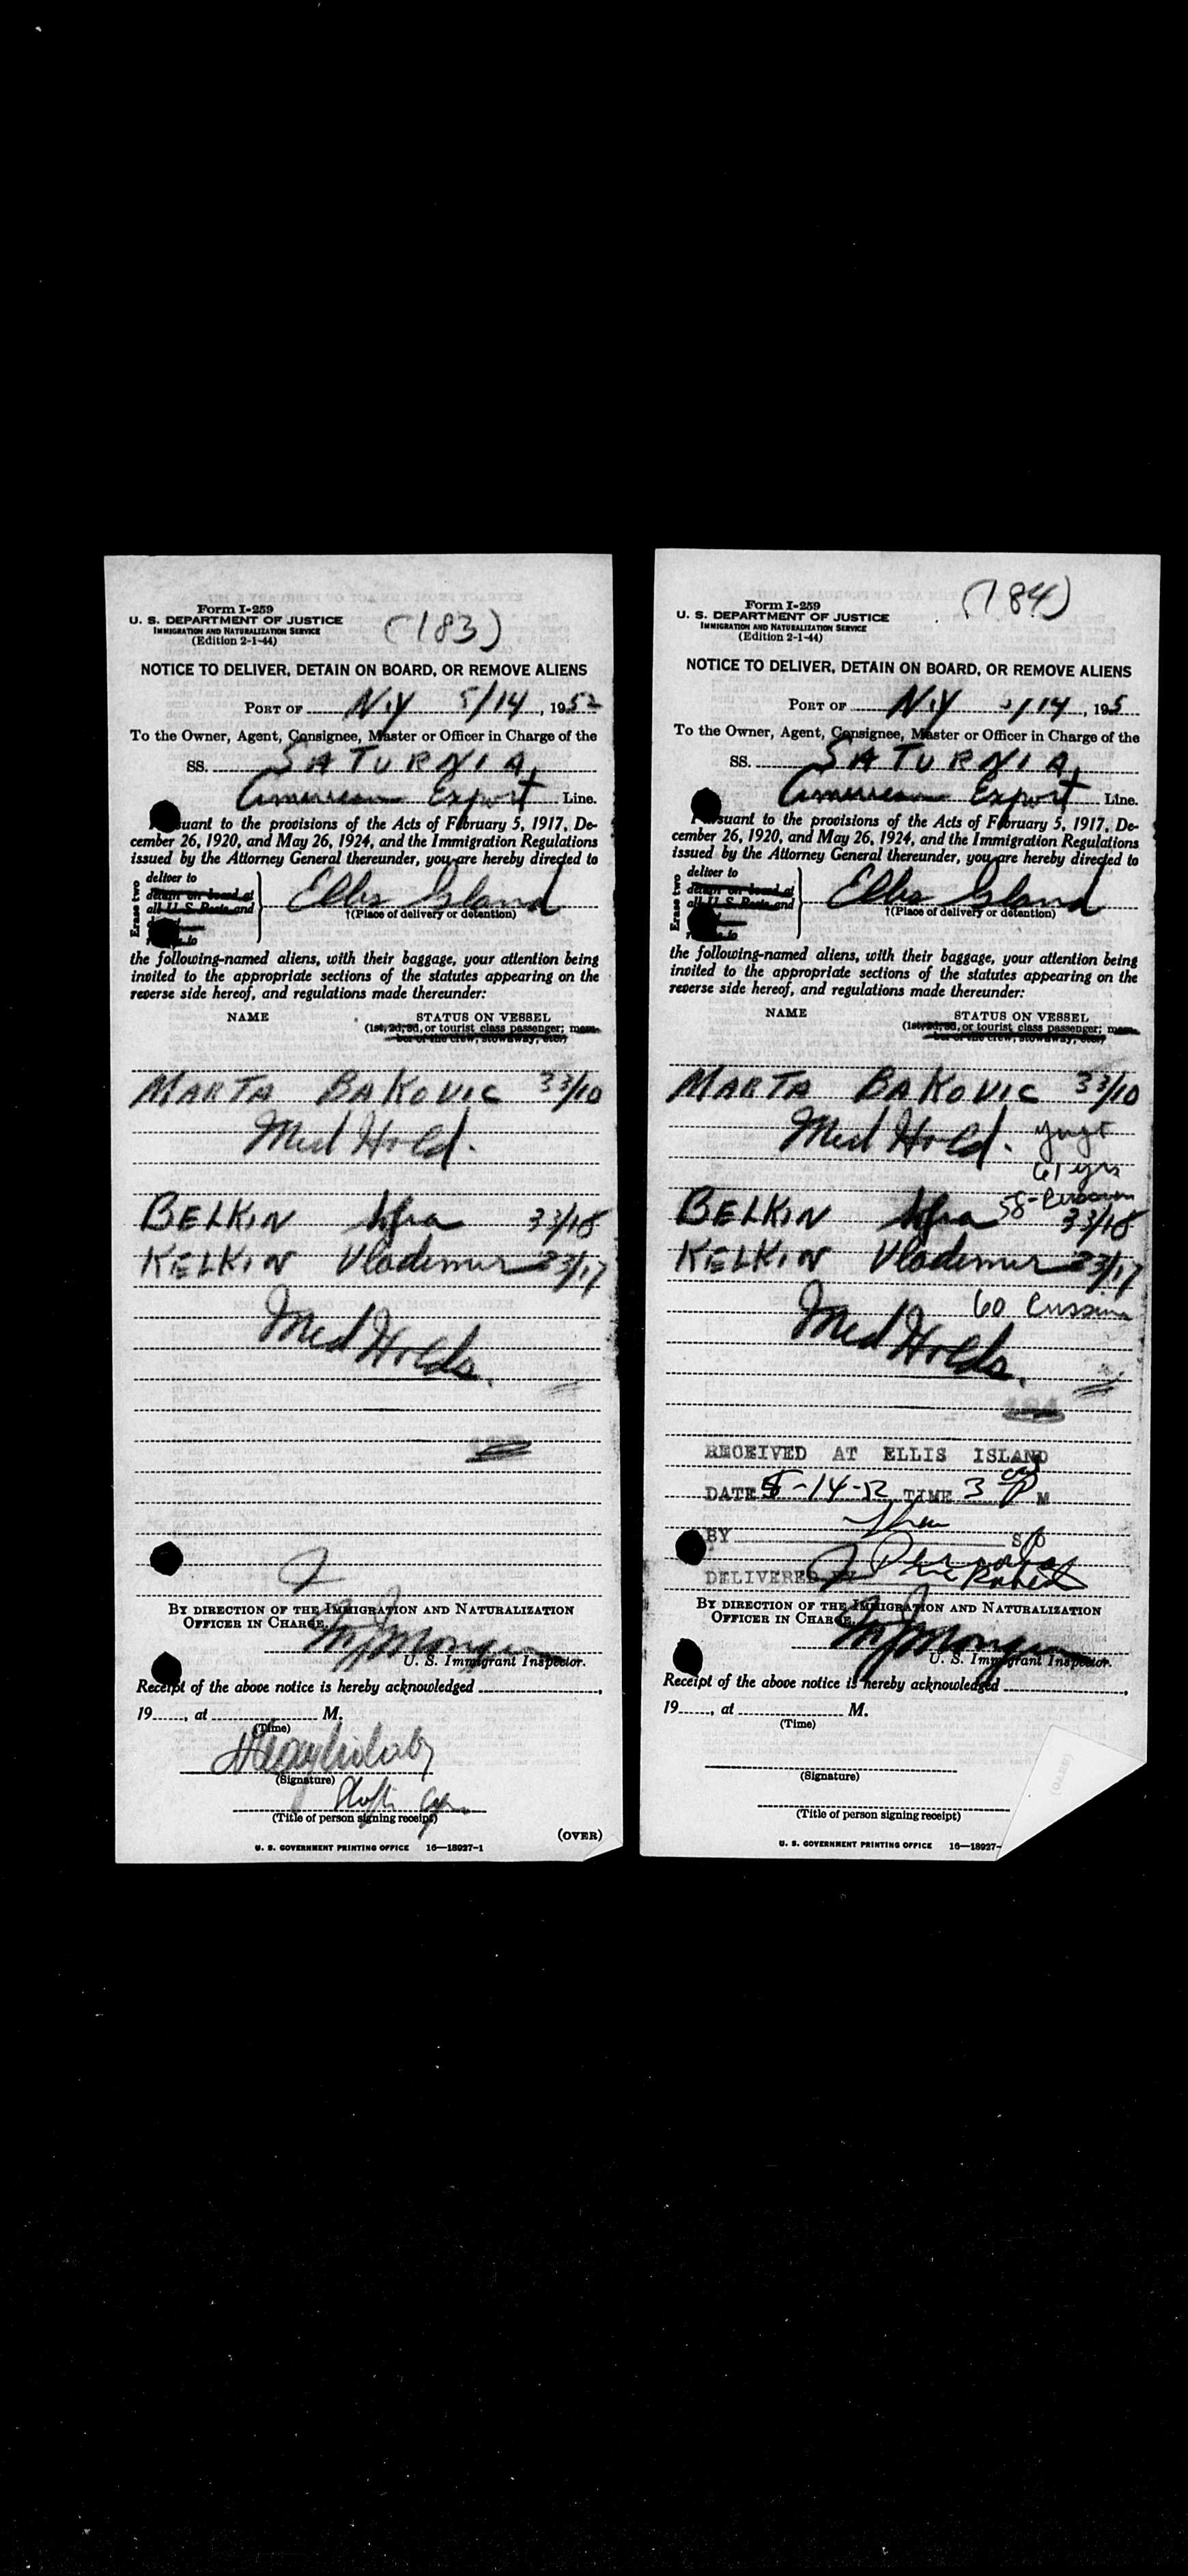 Form I-259
U. S. DEPARTMENT OF JUSTICE
IMMIGRATION AND NATURALIZATION SERVICE
(Edition 2-1-44)
(183)
NOTICE TO DELIVER, DETAIN ON BOARD, OR REMOVE ALIENS
PORT OF N.Y 5/14, 1952
To the Owner, Agent, Consignee, Master or Officer in Charge of the
SS. SATURNIA
American Export Line.
suant to the provisions of the Acts of February 5, 1917, De-
cember 26, 1920, and May 26, 1924, and the Immigration Regulations
issued by the Attorney General thereunder, you are hereby directed to
Erase two
deliver to
detain on board at
all U. S. Ports and
to
Ellis Island
†(Place of delivery or detention)
the following-named aliens, with their baggage, your attention being
invited to the appropriate sections of the statutes appearing on the
reverse side hereof, and regulations made thereunder:
NAME
STATUS ON VESSEL
(1st, 2d, 3d, or tourist class passenger; mem-
ber of the crew, stowaway, etc.)
MARTA BAKOVIC 33/10
Med Hold.
BELKIN 33/18
KELKIN Vlademir 33/17
Med Holds.
BY DIRECTION OF THE IMMIGRATION AND NATURALIZATION
OFFICER IN CHARGE,
U. S. Immigrant Inspector.
Receipt of the above notice is hereby acknowledged ,
19 , at M.
(Time)
(Signature)
(Title of person signing receipt)
(OVER)
U. S. GOVERNMENT PRINTING OFFICE 16—18927-1
Form I-259
U. S. DEPARTMENT OF JUSTICE
IMMIGRATION AND NATURALIZATION SERVICE
(Edition 2-1-44)
(184)
NOTICE TO DELIVER, DETAIN ON BOARD, OR REMOVE ALIENS
PORT OF N.Y 5/14, 195
To the Owner, Agent, Consignee, Master or Officer in Charge of the
SS. SATURNIA
American Export Line.
suant to the provisions of the Acts of February 5, 1917, De-
cember 26, 1920, and May 26, 1924, and the Immigration Regulations
issued by the Attorney General thereunder, you are hereby directed to
Erase two
deliver to
detain on board at
all U. S. Ports and
to
Ellis Island
†(Place of delivery or detention)
the following-named aliens, with their baggage, your attention being
invited to the appropriate sections of the statutes appearing on the
reverse side hereof, and regulations made thereunder:
NAME
STATUS ON VESSEL
(1st, 2d, 3d, or tourist class passenger; mem-
ber of the crew, stowaway, etc.)
MARTA BAKOVIC 33/10
Med Hold.
61 yrs
58-Russian
BELKIN 33/18
KELKIN Vlademir 33/17
60 Russian
Med Holds.
RECEIVED AT ELLIS ISLAND
DATE 5-14-52 TIME 3 P M
BY S/O
DELIVERED BY
BY DIRECTION OF THE IMMIGRATION AND NATURALIZATION
OFFICER IN CHARGE,
U. S. Immigrant Inspector.
Receipt of the above notice is hereby acknowledged ,
19 , at M.
(Time)
(Signature)
(Title of person signing receipt)
U. S. GOVERNMENT PRINTING OFFICE 16—18927-